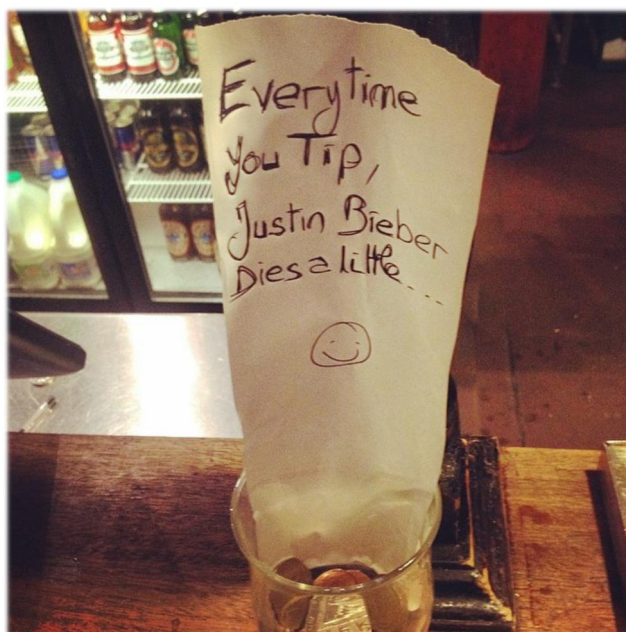 Everytime
you Tip,
Justin Bieber
Dies a little....